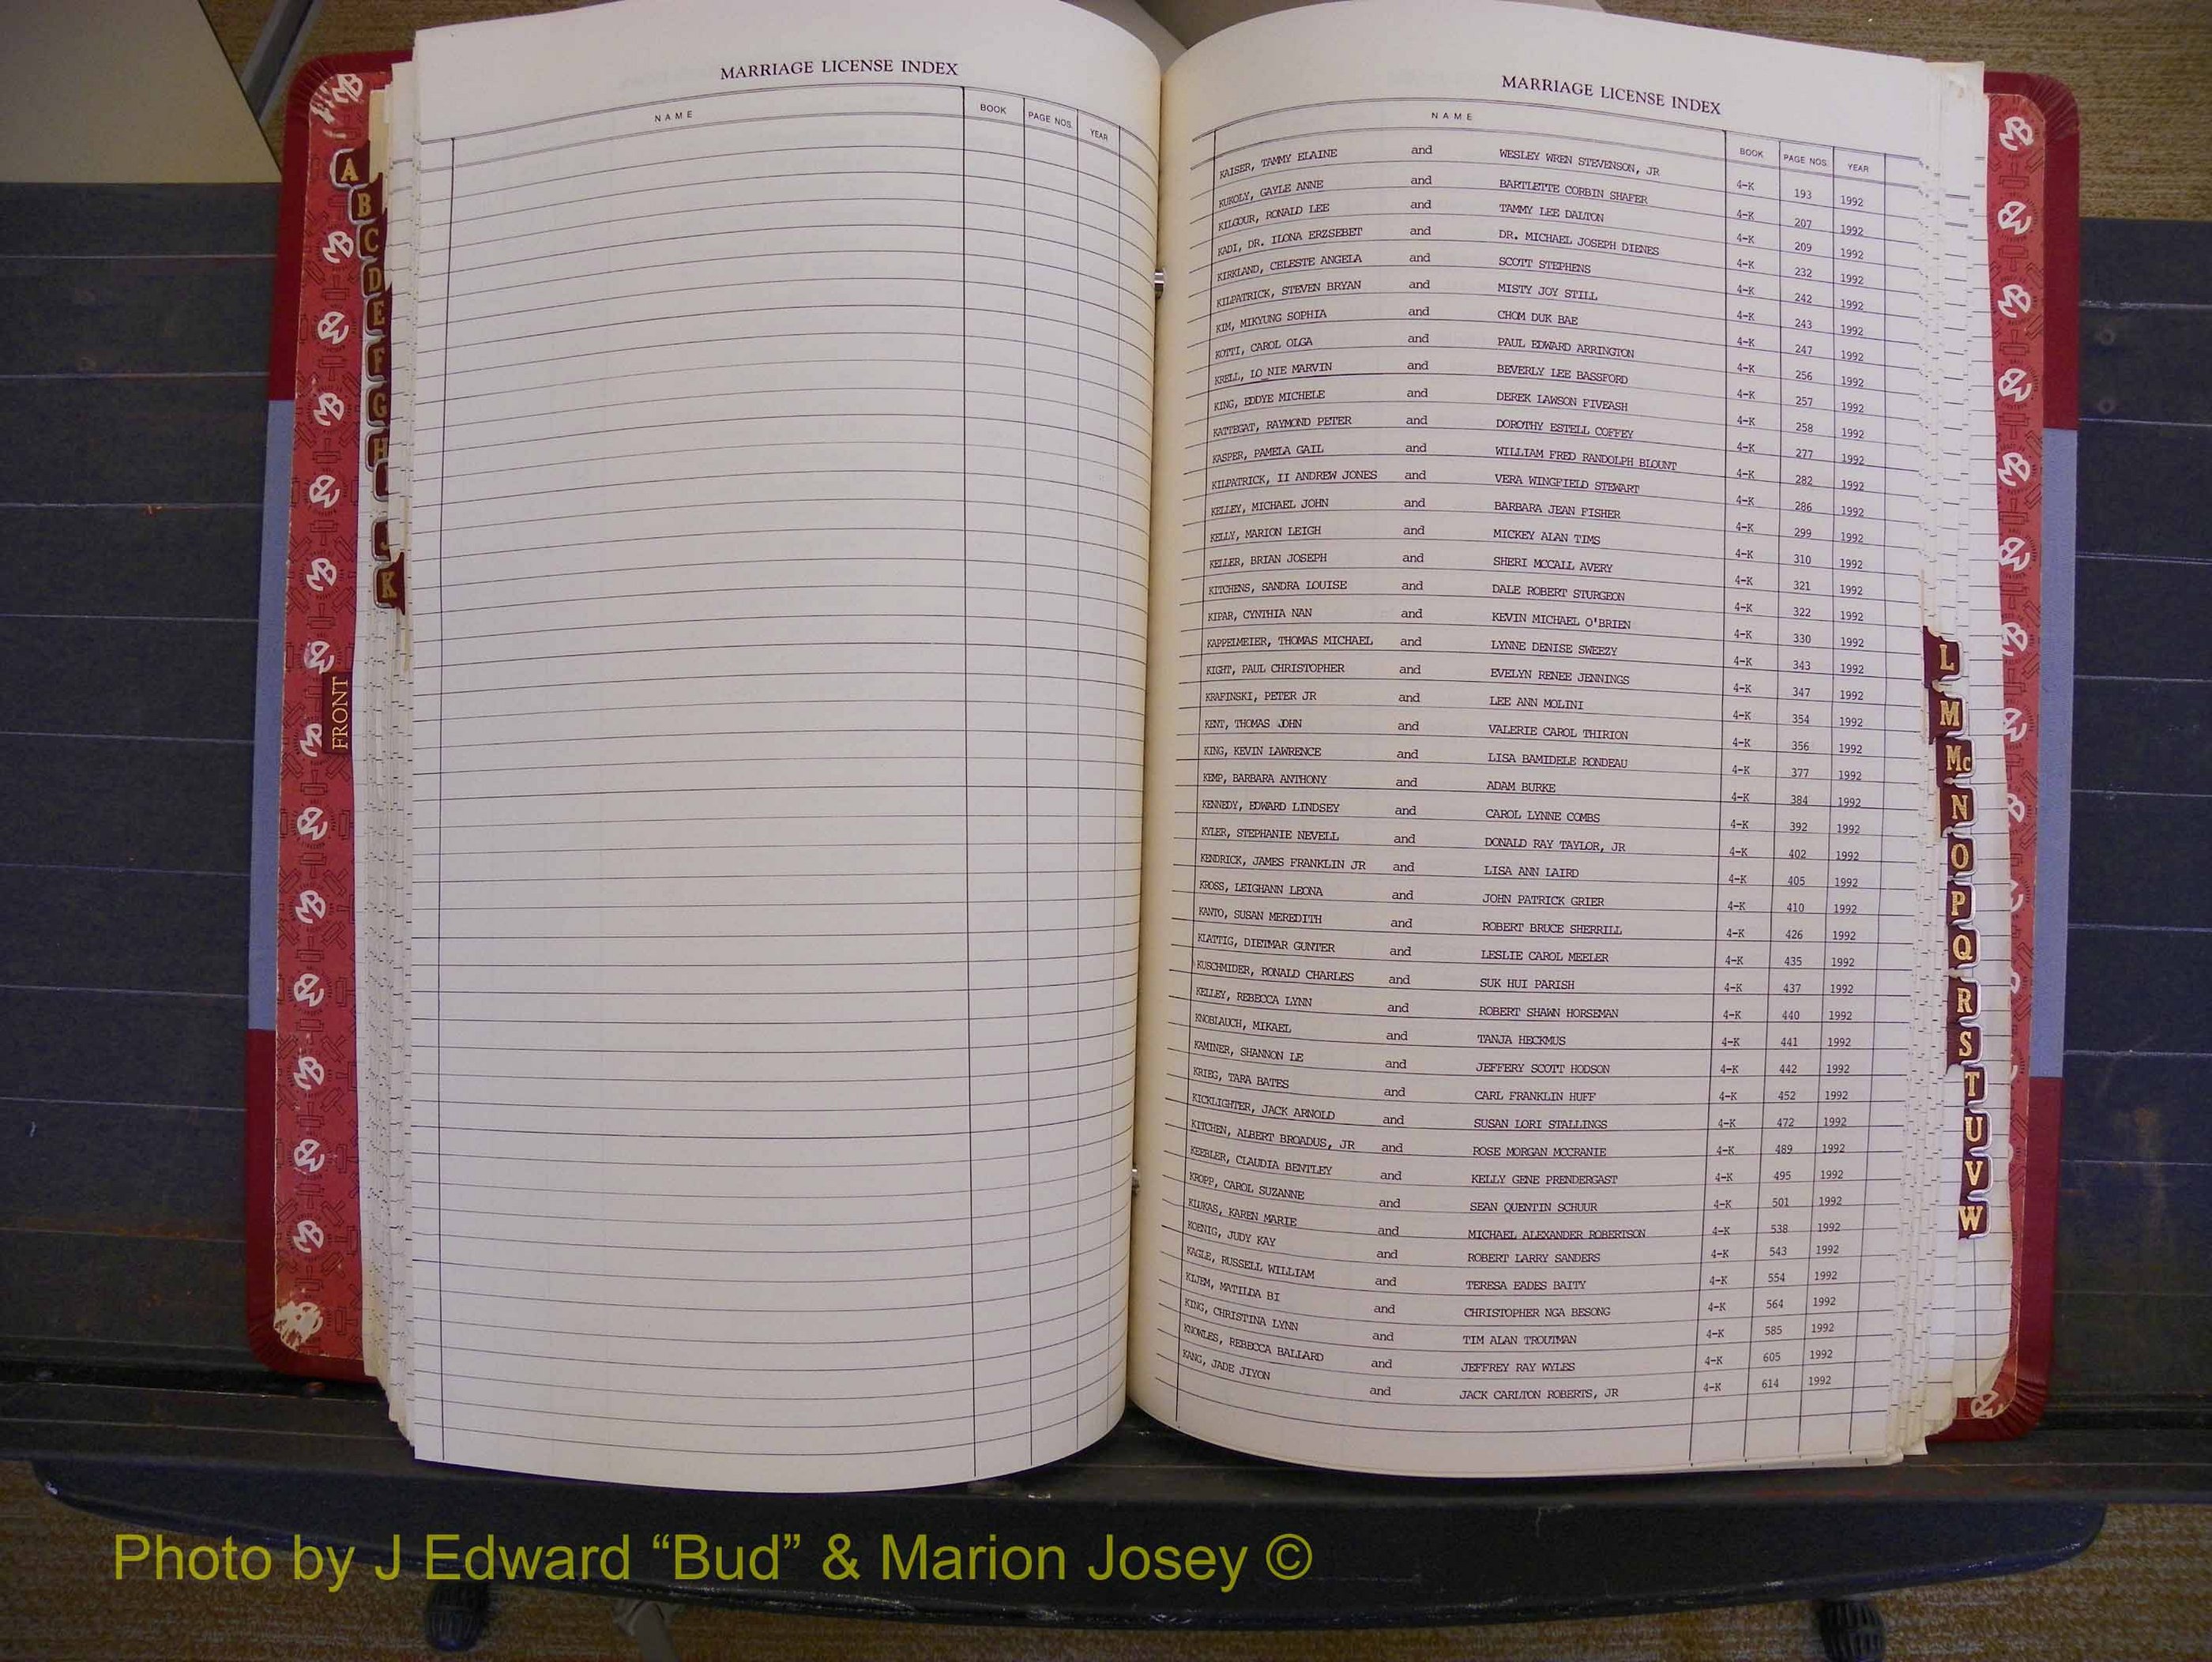 MARRIAGE LICENSE INDEX
NAME BOOK PAGE NOS. YEAR
A
B
C
D
E
F
G
H
J
K
FRONT
MARRIAGE LICENSE INDEX
NAME BOOK PAGE NOS. YEAR
KAISER, TAMMY ELAINE and WESLEY WREN STEVENSON, JR 4-K 193 1992
KUROLY, GAYLE ANNE and BARTLETTE CORBIN SHAFER 4-K 207 1992
KILGOUR, RONALD LEE and TAMMY LEE DALTON 4-K 209 1992
KADI, DR. ILONA ERZSEBET and DR. MICHAEL JOSEPH DIENES 4-K 232 1992
KIRKLAND, CELESTE ANGELA and SCOTT STEPHENS 4-K 242 1992
KILPATRICK, STEVEN BRYAN and MISTY JOY STILL 4-K 243 1992
KIM, MIKYUNG SOPHIA and CHOM DUK BAE 4-K 247 1992
KOTTI, CAROL OLGA and PAUL EDWARD ARRINGTON 4-K 256 1992
KRELL, LO NIE MARVIN and BEVERLY LEE BASSFORD 4-K 257 1992
KING, EDDYE MICHELE and DEREK LAWSON FIVEASH 4-K 258 1992
KATTEGAT, RAYMOND PETER and DOROTHY ESTELL COFFEY 4-K 277 1992
KASPER, PAMELA GAIL and WILLIAM FRED RANDOLPH BLOUNT 4-K 282 1992
KILPATRICK, II ANDREW JONES and VERA WINGFIELD STEWART 4-K 286 1992
KELLEY, MICHAEL JOHN and BARBARA JEAN FISHER 4-K 299 1992
KELLY, MARION LEIGH and MICKEY ALAN TIMS 4-K 310 1992
KELLER, BRIAN JOSEPH and SHERI MCCALL AVERY 4-K 321 1992
KITCHENS, SANDRA LOUISE and DALE ROBERT STURGEON 4-K 322 1992
KIPAR, CYNTHIA NAN and KEVIN MICHAEL O'BRIEN 4-K 330 1992
KAPPELMEIER, THOMAS MICHAEL and LYNNE DENISE SWEEZY 4-K 343 1992
KIGHT, PAUL CHRISTOPHER and EVELYN RENEE JENNINGS 4-K 347 1992
KRAFINSKI, PETER JR and LEE ANN MOLINI 4-K 354 1992
KENT, THOMAS JOHN and VALERIE CAROL THIRION 4-K 356 1992
KING, KEVIN LAWRENCE and LISA BAMIDELE RONDEAU 4-K 377 1992
KEMP, BARBARA ANTHONY and ADAM BURKE 4-K 384 1992
KENNEDY, EDWARD LINDSEY and CAROL LYNNE COMBS 4-K 392 1992
KYLER, STEPHANIE NEVELL and DONALD RAY TAYLOR, JR 4-K 402 1992
KENDRICK, JAMES FRANKLIN JR and LISA ANN LAIRD 4-K 405 1992
KROSS, LEIGHANN LEONA and JOHN PATRICK GRIER 4-K 410 1992
KANTO, SUSAN MEREDITH and ROBERT BRUCE SHERRILL 4-K 426 1992
KLATTIG, DIETMAR GUNTER and LESLIE CAROL MEELER 4-K 435 1992
KUSCHMIDER, RONALD CHARLES and SUK HUI PARISH 4-K 437 1992
KELLEY, REBECCA LYNN and ROBERT SHAWN HORSEMAN 4-K 440 1992
KNOBLAUCH, MIKAEL and TANJA HECKMUS 4-K 441 1992
KAMINER, SHANNON LE and JEFFERY SCOTT HODSON 4-K 442 1992
KRIEG, TARA BATES and CARL FRANKLIN HUFF 4-K 452 1992
KICKLIGHTER, JACK ARNOLD and SUSAN LORI STALLINGS 4-K 472 1992
KITCHEN, ALBERT BROADUS, JR and ROSE MORGAN MCCRANIE 4-K 489 1992
KEEBLER, CLAUDIA BENTLEY and KELLY GENE PRENDERGAST 4-K 495 1992
KROPP, CAROL SUZANNE and SEAN QUENTIN SCHUUR 4-K 501 1992
KLUKAS, KAREN MARIE and MICHAEL ALEXANDER ROBERTSON 4-K 538 1992
KOENIG, JUDY KAY and ROBERT LARRY SANDERS 4-K 543 1992
KAGLE, RUSSELL WILLIAM and TERESA EADES BAITY 4-K 554 1992
KIJEM, MATILDA BI and CHRISTOPHER NGA BESONG 4-K 564 1992
KING, CHRISTINA LYNN and TIM ALAN TROUTMAN 4-K 585 1992
KNOWLES, REBECCA BALLARD and JEFFREY RAY WYLES 4-K 605 1992
KANG, JADE JIYON and JACK CARLTON ROBERTS, JR 4-K 614 1992
L
M
Mc
N
O
P
Q
R
S
T
U
V
W
Photo by J Edward “Bud” & Marion Josey ©